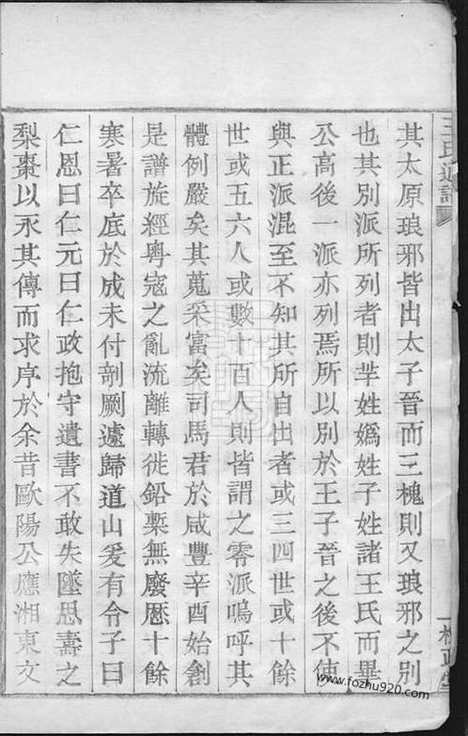 王氏通譜
其太原琅邪皆出太子晉而三槐則又琅邪之別
也其別派所列者則芈姓嬀姓子姓諸王氏而畢
公高後一派亦列焉所以別於王子晉之後不使
與正派混至不知其所自出者或三四世或十餘
世或五六人或數十百人則皆謂之零派嗚呼其
體例嚴矣其蒐采富矣司馬君於咸豐辛酉始創
是譜旋經粵寇之亂流離轉徙鉛槧無廢厯十餘
寒暑卒底於成未付剞劂遽歸道山爰有令子曰
仁恩曰仁元曰仁政抱守遺書不敢失墜思壽之
梨棗以永其傳而求序於余昔歐陽公應湘東文
www.fozhu920.com